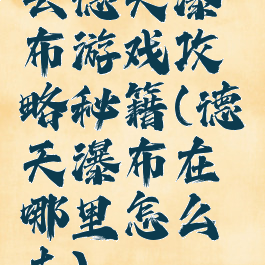 去德天瀑
布游戏攻
略秘籍(德
天瀑布在
哪里怎么
去)